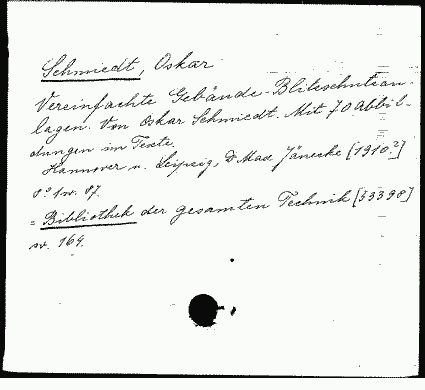 Schmiedt, Oskar
Vereinfachte Gebäude-Blitzschutzan-
lagen. Von Oskar Schmiedt. Mit 70 Abbil-
dungen im Texte.
Hannover u. Leipzig, Dr Max Jänecke [1910?]
8° IV. 87.
= Bibliothek der gesamten Technik [33398]
nr. 164.